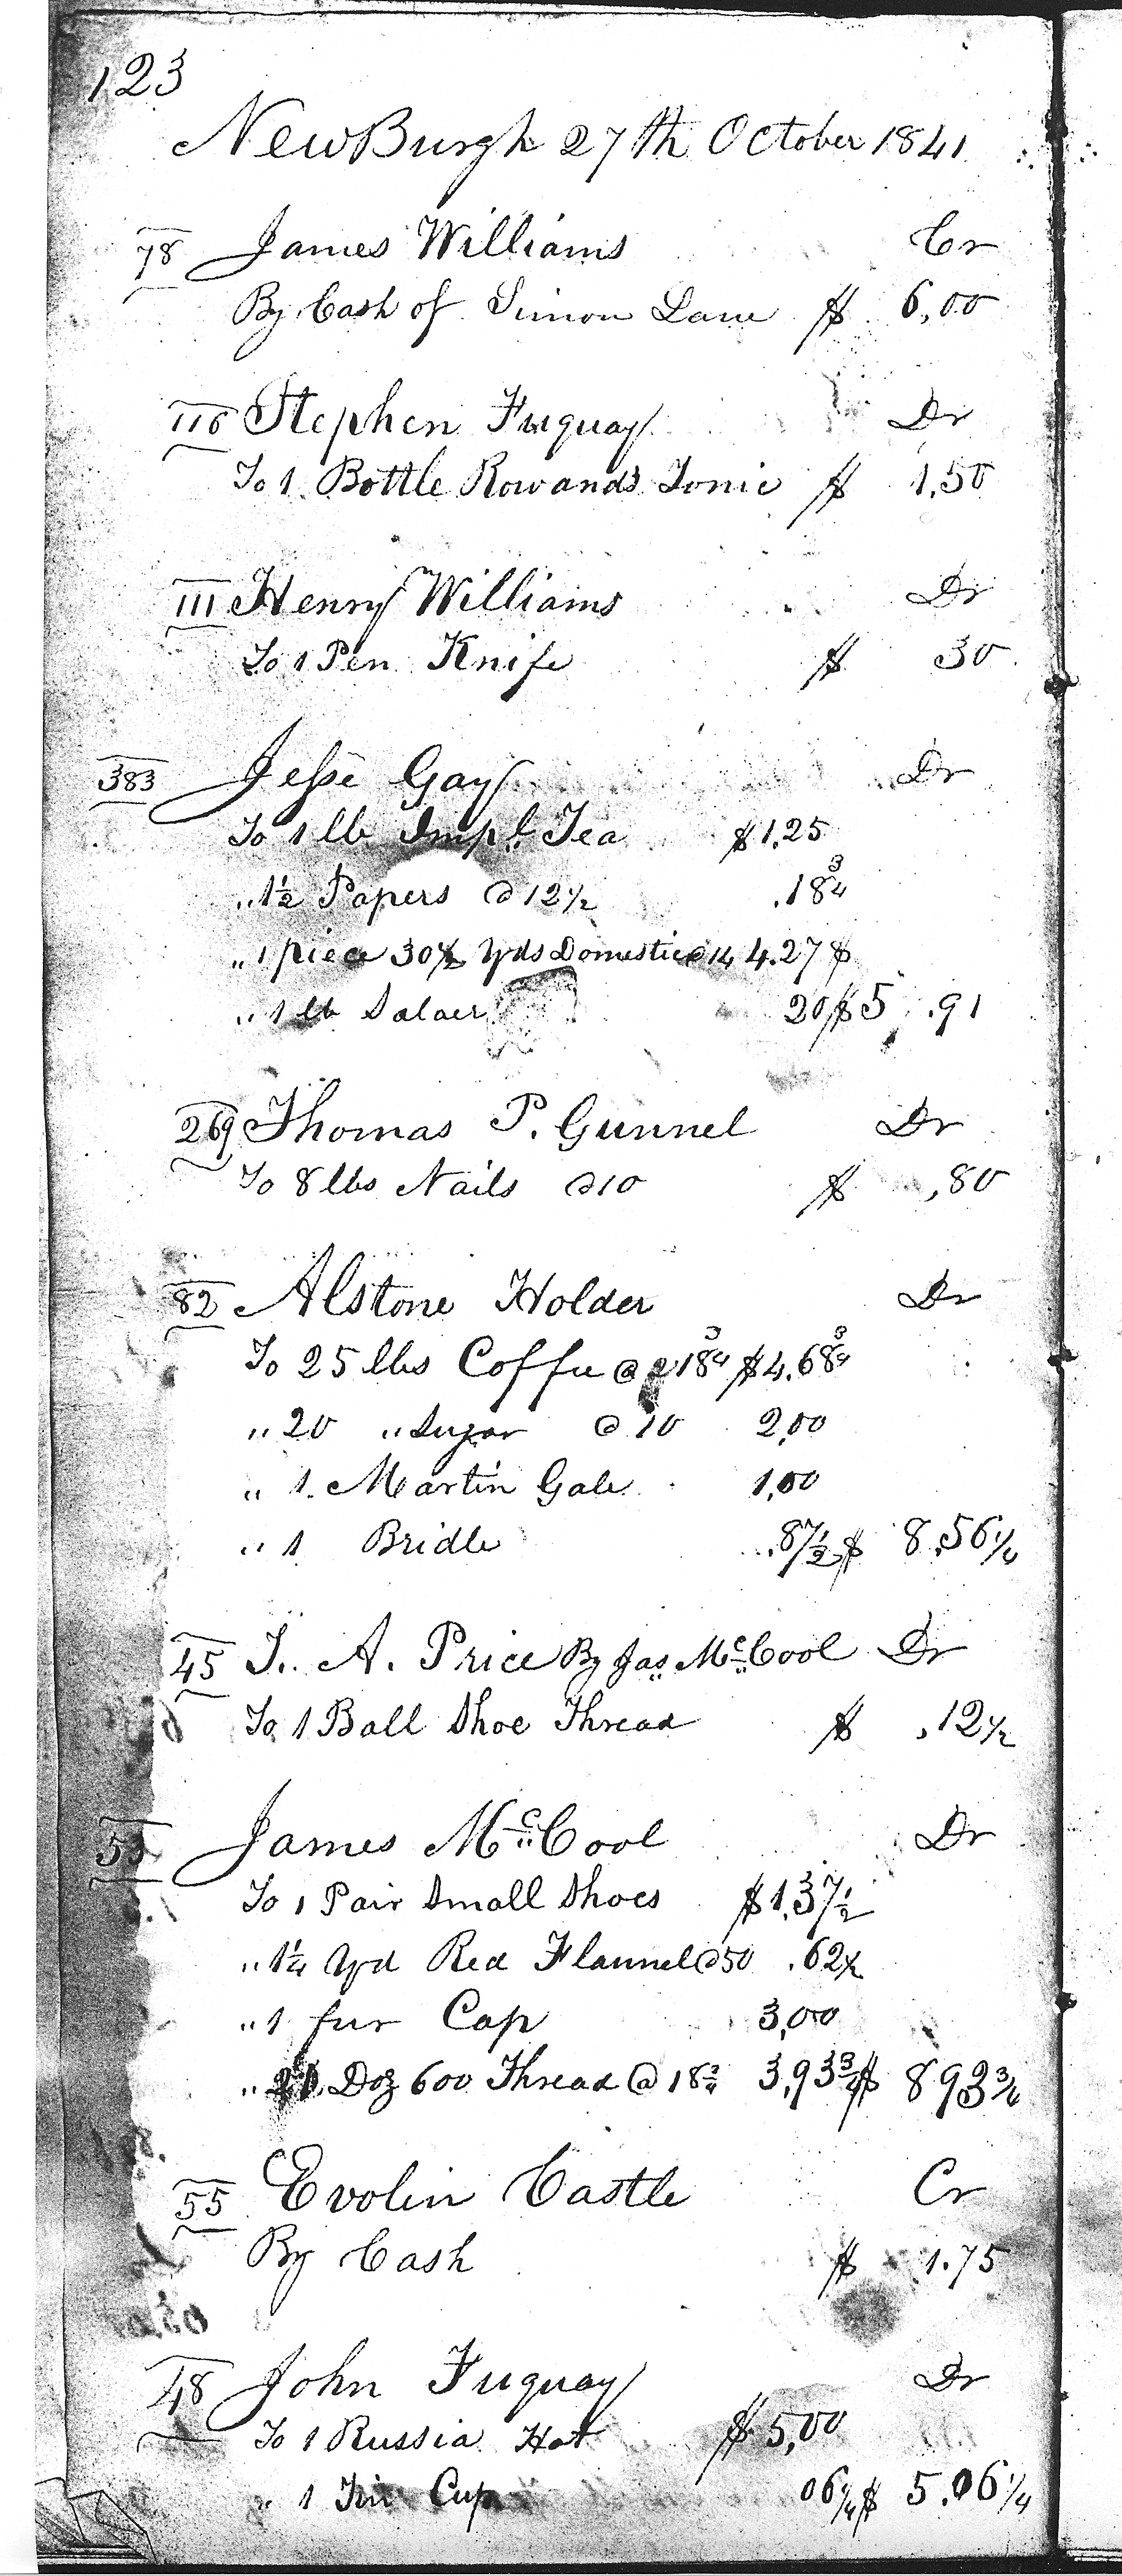 123
NewBurgh 27th October 1841
78 James Williams Cr
By Cash of Simon Lane $ 6,00
116 Stephen Fuquay Dr
To 1 Bottle Rowands Tonic $ 1,50
111 Henry Williams Dr
To 1 Pen Knife $ 30
383 Jesse Gay Dr
To 1 lb Impl. Tea $1,25
„ 1½ Papers @ 12½ .18¾
„ 1 piece 30½ Yds Domestic @ 14 4.27 $
„ 1 lb Salaer 20 $ 5 .91
269 Thomas P. Gunnel Dr
To 8 lbs Nails @ 10 $ ,80
82 Alstone Holder Dr
To 25 lbs Coffee @ 18¾ $4.68¾
„ 20 „ Sugar @ 10 2,00
„ 1. Martin Gale 1,00
„ 1 Bridle .87½ $ 8,56¼
45 T. A. Price By Jas McCool Dr
To 1 Ball Shoe Thread $ ,12½
53 James McCool Dr
To 1 Pair Small Shoes $1,37½
„ 1¼ Yd Red Flannel @ 50 .62½
„ 1 fur Cap 3,00
„ 21 Doz 600 Thread @ 18¾ 3,93¾ $ 8 93¾
55 Evolin Castle Cr
By Cash $ 1.75
48 John Fuquay Dr
To 1 Russia Hat $ 5,00
„ 1 Tin Cup 06¼ $ 5.06¼